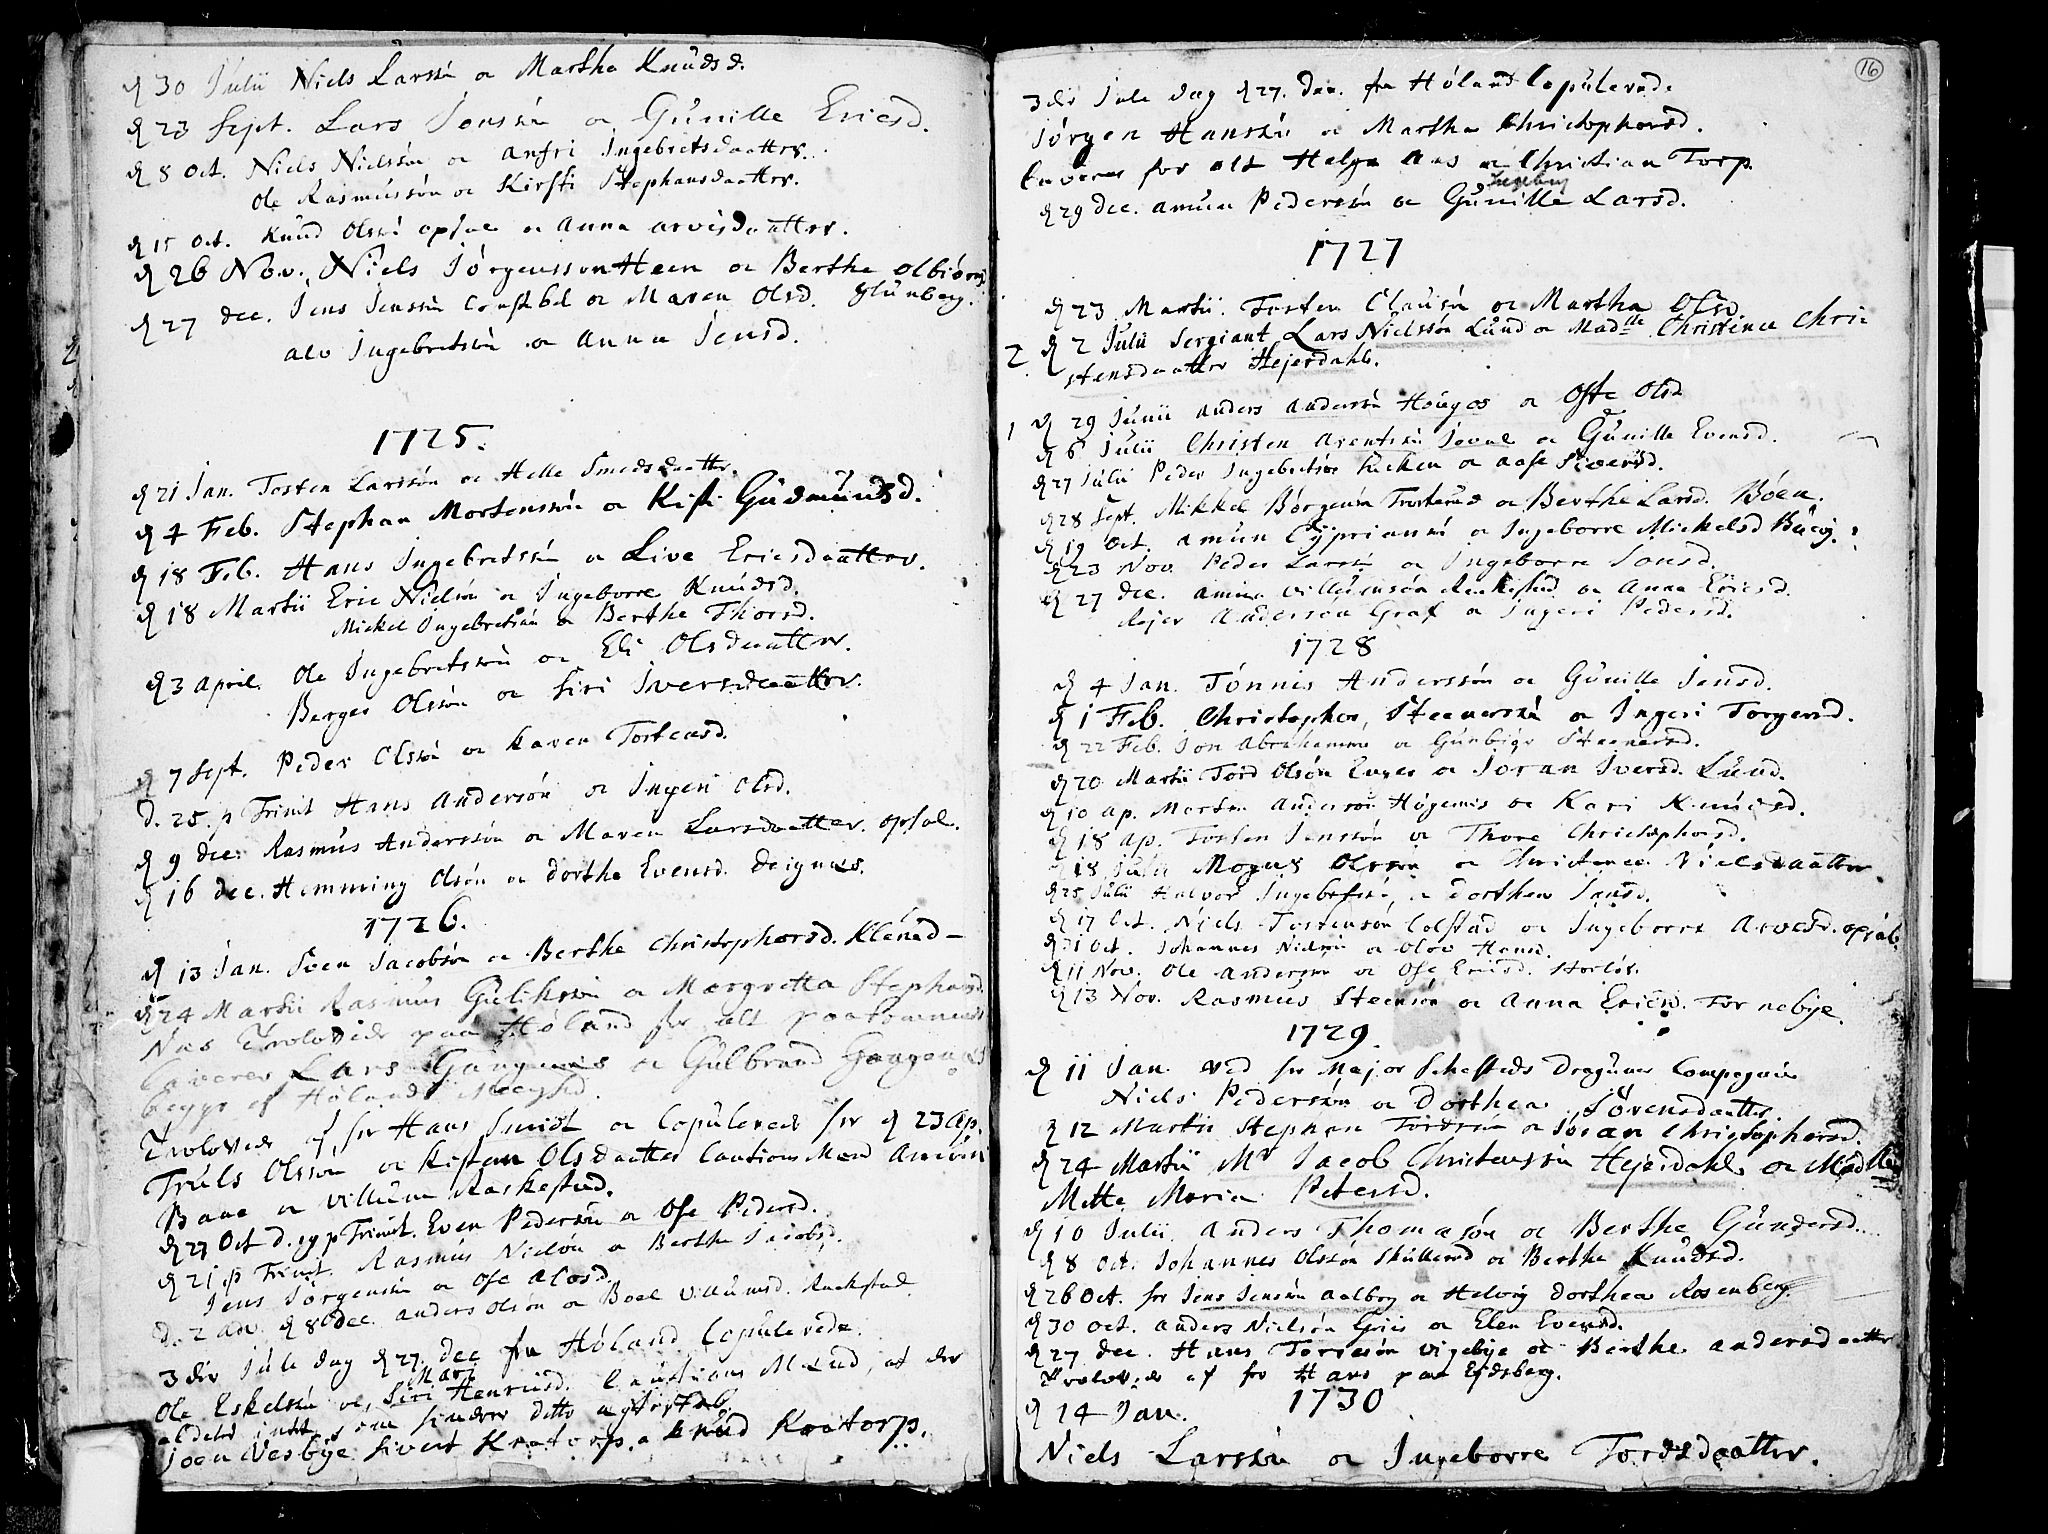 d 30 Julii Niels Larssøn oc Martha Knudsd.
d 23 Sept. Lars Jenssøn oc Gunille Ericsd.
d 8 Oct. Niels Nielssøn oc Anfri Ingebretsdaatter.
Ole Rasmussøn oc Kirsti Stephansdaatter.
d 15 Oct. Knud Olssøn opsal oc Anna arvisdaatter.
d 26 Nov. Niels Jørgenssøn Heen oc Berthe olbiørns
d 27 dec. Jens Jenssøn oc Maren Olsd.
alv Ingebretssøn oc Anna Jensd.
1725.
d 21 Jan. Tosten Larssøn oc Helle Smedsdaatter.
d 4 Feb. Stephan Mortenssøn oc Kisti Gudmundsd.
d 18 Feb. Hans Ingebretssøn oc Live Ericsdaatter.
d 18 Martii Eric Nielsøn oc Ingeborre Knudsd.
Mickel Ingebretsøn oc Berthe Thorsd.
d 3 April. Ole Ingebretssøn oc Eli Olsdaatter.
Berger Olssøn oc Siri Iversdaatter.
d 7 Sept. Peder Olssøn oc Karen Tostensd.
d. 25. p Trinit Hans Andersøn oc Ingeri Olsd.
d 9 dec. Rasmus Anderssøn oc Maren Larsdaatter. opsal.
d 16 dec. Hemming Olsøn oc dorthe Evensd. deignes.
1726.
d 13 Jan. Sven Jacobsøn oc Berthe Christophersd. Klénd-
d 24 Martii Rasmus Guliksøn oc Margretta Stephansd.
Nus Troloved paa Høland for alt paakommende
Caverer Lars Gangnes oc Gulbrand Gangnes
begge af Hølands
Troloved af hr Hans Smidt oc Copulered her d 23 Ap.
Truls Olssøn oc Kisten Olsdaatter Cautions Mend Amun
Bane oc Villum Raskestad.
d 27 Oct d. 19 p Trinit. Even Pedersøn oc Ose Pedersd.
d 21 p Trinit. Rasmus Nielsøn oc Berthe Jacobsd.
Jens Jørgensøn oc Ose Alosd.
D. 2 Adv. d 8 Dec. Anders Olsøn oc Boel Villumsd. Rackstad.
3die Jule dag d 27. Dec fra Høland Copulerede.
Mari
Ole Eskelsøn oc, Siri Henricsd. Cautions Mend, at der
aldeles intet
Joen Vesbye Sivert Kratorp. a Knud Kratorp.
16
3die Jule dag d 27. Dec. fra Høland Copulered.
Jørgen Hanssøn oc Martha Christophersd.
Caverer for alt Helge Aas oc Christian Torp.
Ingeborg
d 29 dec. Amun Pedersøn oc Gunille Larsd.
1727
d 23 Martii. Tosten Clausøn oc Martha Olsd
2 d 2 Julii Sergiant Lars Nielssøn Lund oc Madlle Christina Chri=
stensdaatter Hejerdahl.
1 d 29 Junii Anders Andersøn Hougos oc Oste Olsd
d 6 Julii Christen Arentsøn Joval oc Gunille Evensd.
d 27 Julii Peder Ingebretsøn oc aase Siversd.
d 28 Sept. Mikkel Børgersøn Trosterud oc Berthe Larsd. Bøen.
d 19 Oct. Amun Cypriansøn oc Ingeborre Mickelsd Buey.
d 23 Nov. Peder Larssøn oc Ingeborre Jonsd.
d 27 dec. Amun Villumsøn Raskestad oc Anna Ericsd.
Rejer Andersen Graf oc Ingeri Pedersd.
1728
d 4 Jan. Tønnis Anderssøn oc Gunille Jensd.
d 1 Feb. Christopher, Steenersøn oc Ingeri Torgersd.
d 22 Feb. Jon Abrahamsøn oc Gunbiør Steenersd.
d 20 Martii Tord Olsøn Enger oc Joran Iversd. Lund.
d 10 Ap. Morten Andersøn Høgenis oc Kari Knudsd.
d 18 Ap. Tosten Jenssøn oc Thore Christophersd.
d 18 Julii Mogens Olssøn oc Christence Nielsdaatter.
d 25 Julii Halvor Ingebretsøn, oc Dorthea Jansd.
d 17 Oct. Niels Tostensøn Colstad oc Ingeborre Arvesd. opsal.
d 31 Oct. Johannes Nielsøn oc Olov Hansd.
d 11 Nov. Ole Andersøn oc Ose Ericsd.
d 13 Nov. Rasmus Steensøn oc Anna Ericsd. Tornebye.
1729.
d 11 Jan. ved hr Major Schesteds Draguner Compagnie
Niels Pedersøn oc Dorthea Sørensdaatter.
d 12 Martii Stephan Tordsøn oc Joran Christophersd.
d 24 Martii Mr Jacob Christenssøn Hejerdahl oc Madlle
Mette Maria Petersd.
d 10 Julii. Anders Thomasøn oc Berthe Gundersd.
d 8 Oct. Johannes Olssøn Skullerud oc Berthe Knudsd.
d 26 Oct. hr Jens Jensøn Aalborg oc Helvig Dorthea Rosenberg.
d 30 Oct. Anders Nielsøn Griis oc Elen Evensd.
d 27 dec. Hans Torresøn Vigebye oc Berthe Andersdaatter
Troloved af hr Hans paa Ejdsberg.
1730
d 14 Jan.
Niels Larssøn oc Ingeborre Tordsdaatter.